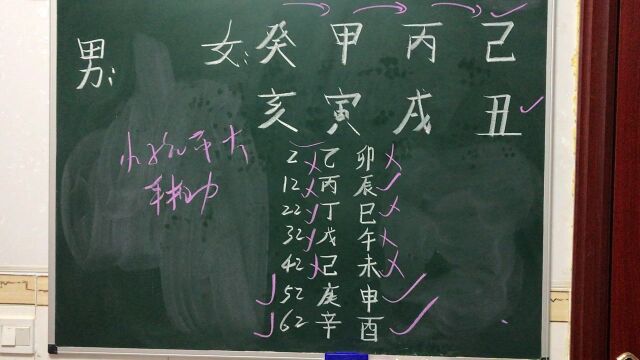 男: 女: 癸 甲 丙 己
亥 寅 戌 丑
2 乙 卯
12 丙 辰
22 丁 巳
32 戊 午
42 己 未
52 庚 申
62 辛 酉